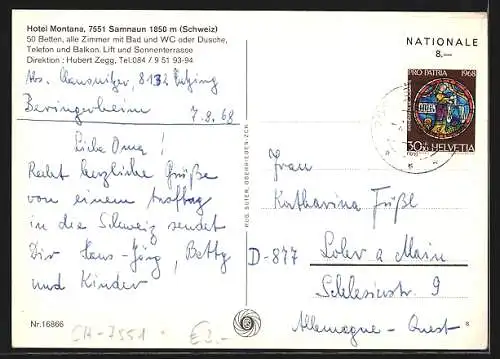 Hotel Montana, 7551 Samnaun 1850 m (Schweiz)
50 Betten, alle Zimmer mit Bad und WC oder Dusche,
Telefon und Balkon. Lift und Sonnenterrasse
Direktion : Hubert Zegg, Tel. 084 / 9 51 93-94
Abs. 8132
7.8.68
Liebe Oma!
Recht herzliche Grüße
von einem
in die Schweiz sendet
Dir Hans-Jörg, Betty
und Kinder
Nr. 16866
CH-7551 €2.-
RUD. SUTER, OBERRIEDEN-ZCH.
NATIONALE
8.—
PRO PATRIA 1968
30+10 HELVETIA
Frau
Katharina Füßl
D-877 Lohr a Main
Schlesierstr. 9
Allemagne - Ouest